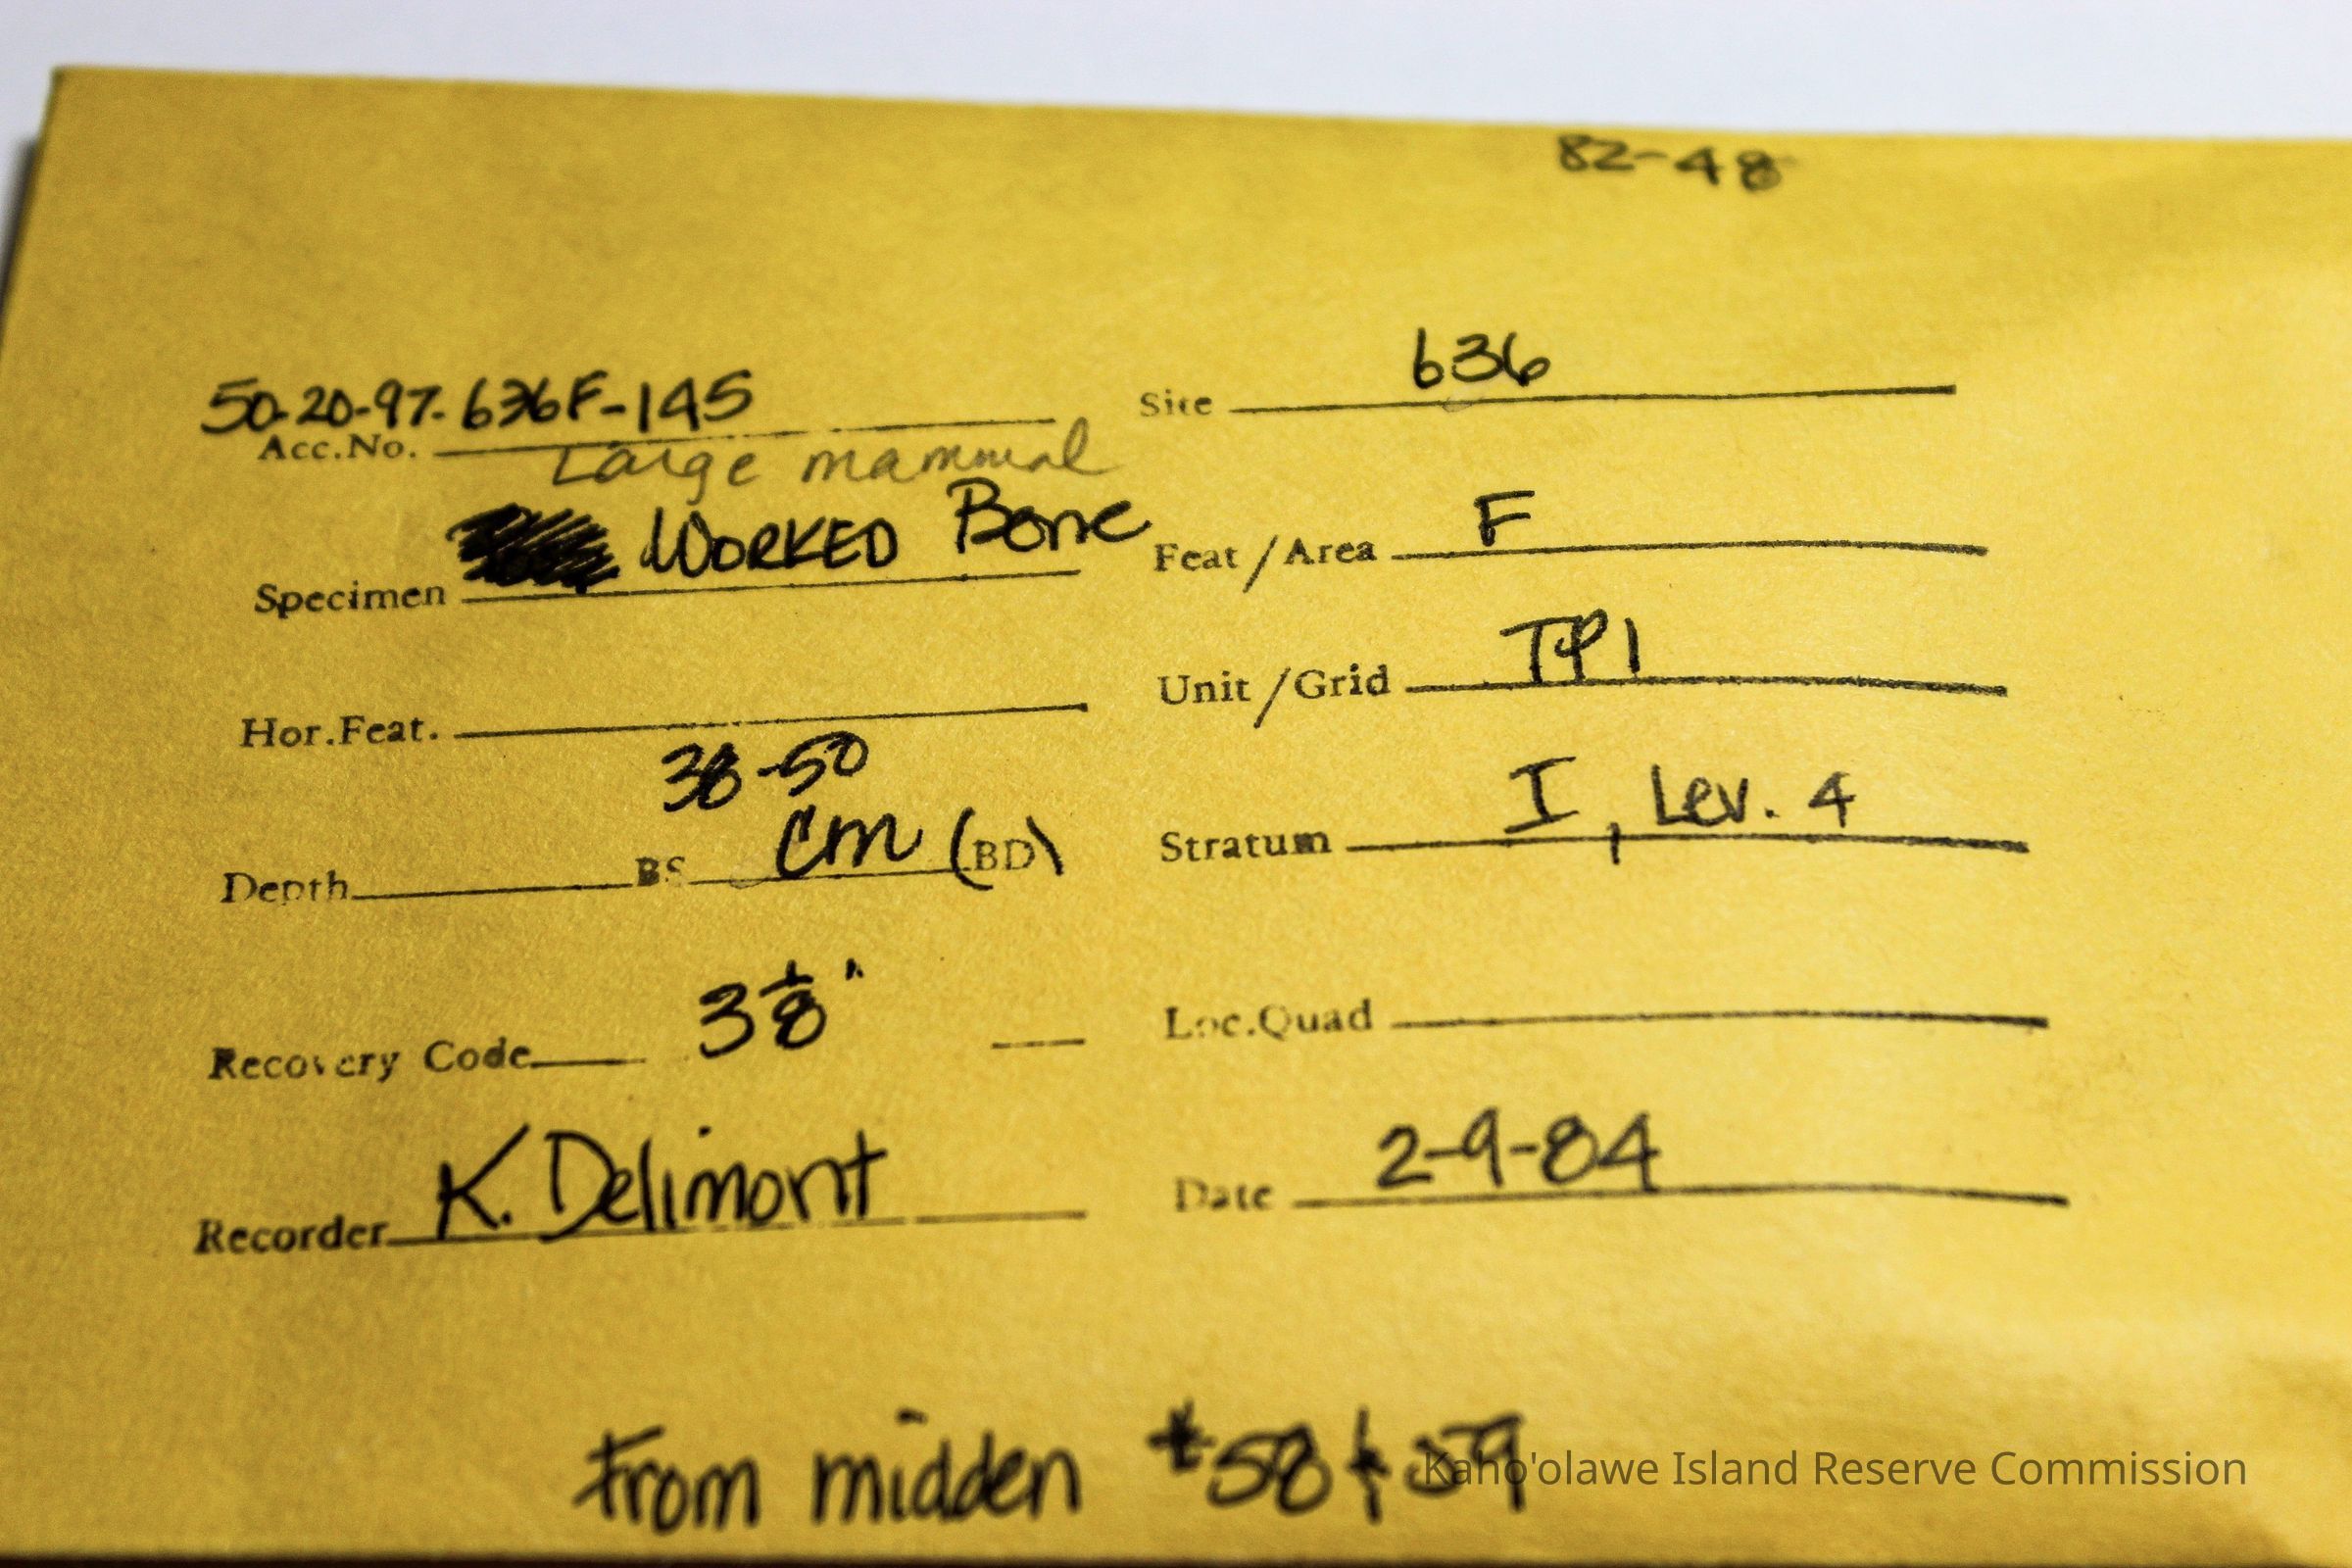 82-48
50-20-97-636F-145
Acc.No.
Large mammal
Specimen WORKED Bone
Hor.Feat.
38-50
Depth BS cm (BD)
Recovery Code 3 1/8"
Recorder K. Delimont
Site 636
Feat/Area F
Unit/Grid TP1
Stratum I, Lev. 4
Loc.Quad
Date 2-9-84
From midden #58 & 59
Kaho'olawe Island Reserve Commission